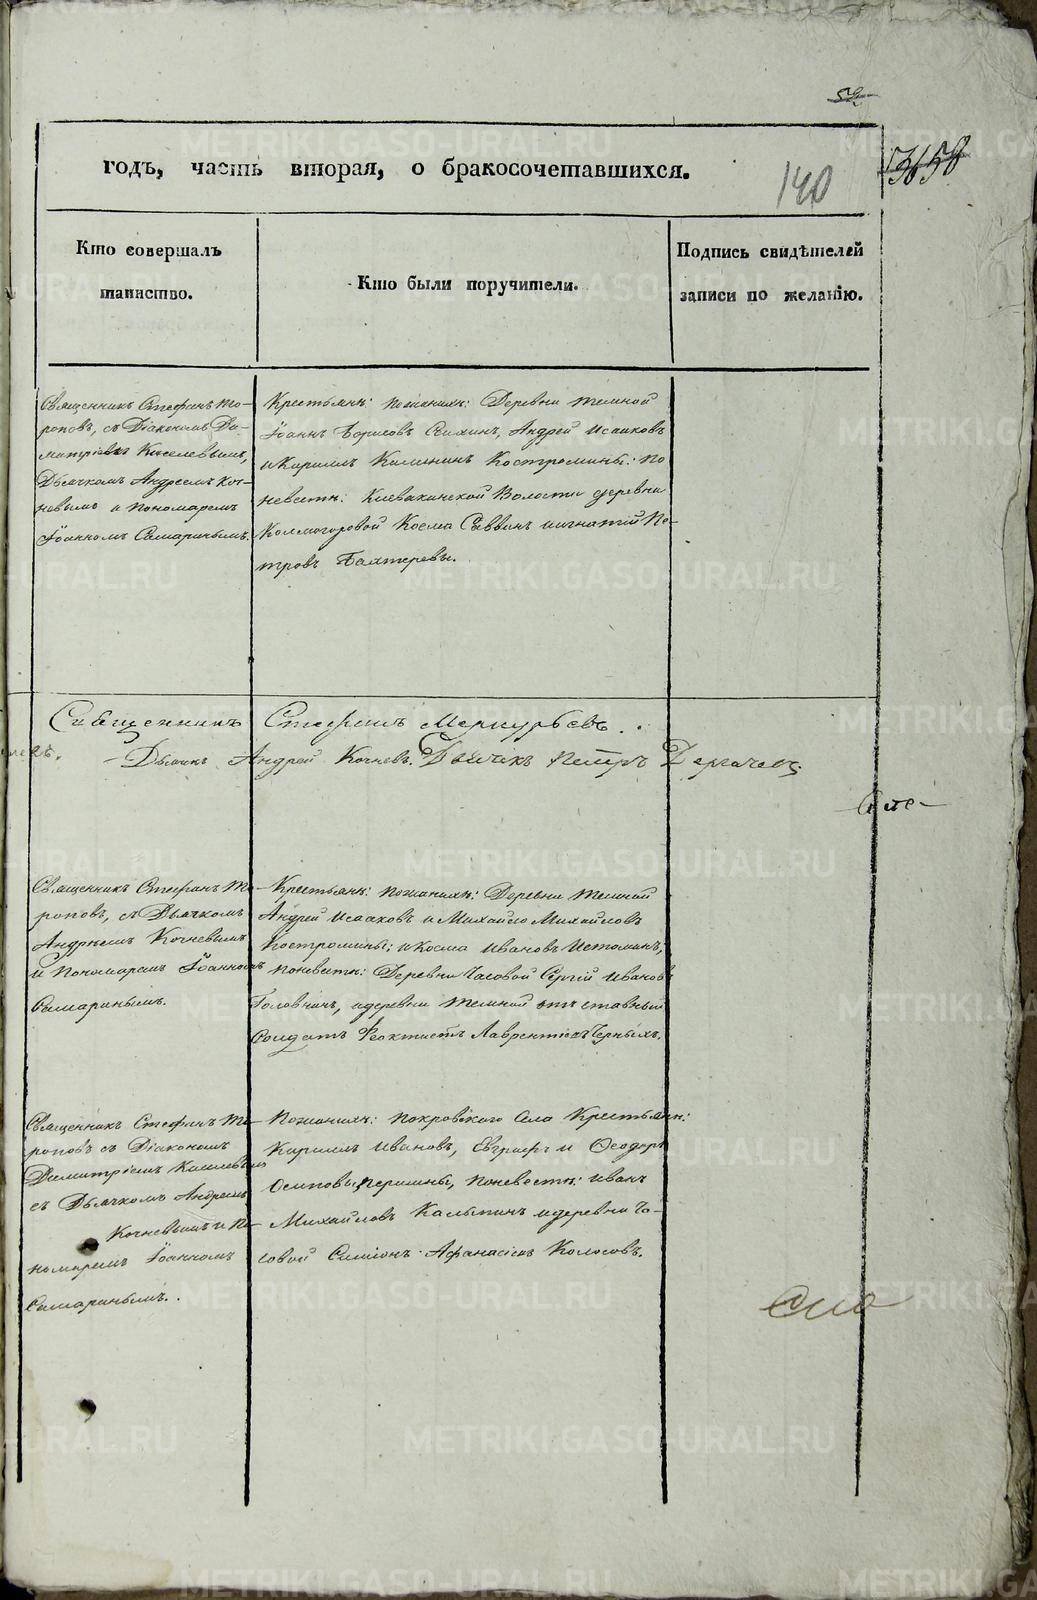 52
годъ, часть вторая, о бракосочетавшихся.
140
Кто совершалъ
таинство.
Кто были поручители.
Подпись свидѣтелей
записи по желанію.
Священникъ Стефанъ То-
роповъ, съ Діакономъ Ди-
митріемъ Киселевымъ,
Дьячкомъ Андреемъ Коч-
невымъ и Пономаремъ
Іоанномъ Самаринымъ.
Крестьяне: Пожениху: Деревни Темной
Іоаннъ Борисовъ Андрей Исааковъ
и Кириллъ Калининъ Костромины: По
невесте: Киевакинской Волости деревни
Колмогоровой Косма Саввинъ и Игнатій Пе-
тровъ Бахтеревы.
Священникъ Стефанъ Меркурьевъ.
Дьячикъ Андрей Кочневъ. Дьячекъ Петръ Дергачевъ.
Священникъ Стефанъ То-
роповъ, съ Дьячкомъ
Андреемъ Кочневымъ
и Пономаремъ Іоанномъ
Самаринымъ.
Крестьяне: Пожениху: Деревни Темной
Андрей Исааковъ и Михайло Михайловъ
Костромины; и Косма Ивановъ Истоминъ,
поневесте: Деревни Часовой Сергій Ивановъ
Головинъ, и деревни Темной отставный
Солдатъ Феоктистъ Лаврентіевъ Черныхъ.
Священникъ Стефанъ То-
роповъ съ Діакономъ
Димитріемъ Киселевымъ
съ Дьячкомъ Андреемъ
Кочневымъ и По-
номаремъ Іоанномъ
Самаринымъ.
Пожениху: Покровского Села Крестьяне:
Кириллъ Ивановъ, Евграфъ и Ѳеодоръ
Осиповы Першины, Поневесте: Иванъ
Михайловъ Калынинъ и деревни Ча-
совой Симіонъ Афанасіевъ Колосовъ.